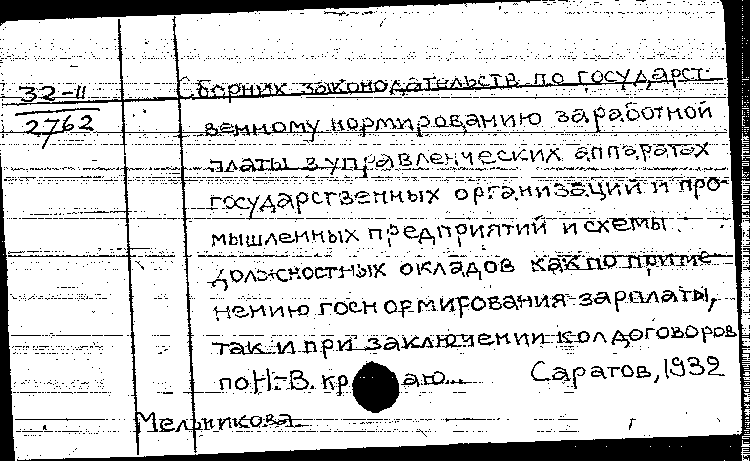 32-II
2762
Сборник законодательств по государст-
венному нормированию заработной
платы в управленческих аппаратах
государственных организаций и про-
мышленных предприятий и схемы
должностных окладов как по приме-
нению госнормирования зарплаты,
так и при заключении колдоговоров
по Н.-В. краю... Саратов, 1932
Мельникова